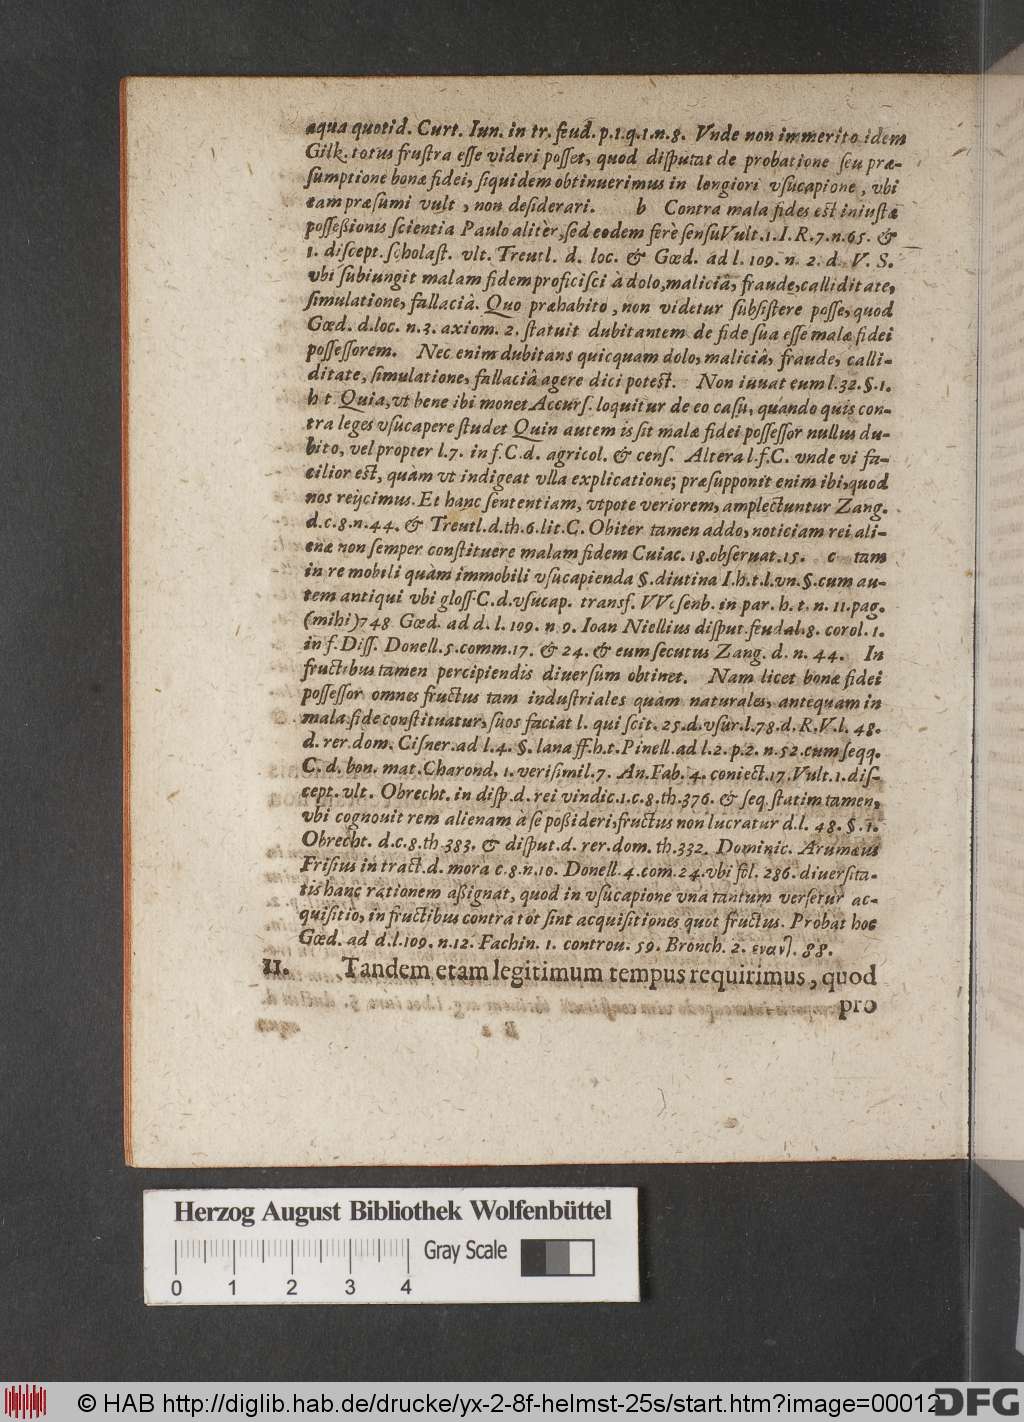 aqua quotid. Curt. Iun. in tr. feud. p.1.q.1.n.8. Vnde non immerito idem
Gilk. totus frustra esse videri posset, quod disputat de probatione seu præ-
sumptione bonæ fidei, siquidem obtinuerimus in longiori vsucapione, vbi
eam præsumi vult, non desiderari. b Contra mala fides est iniustæ
possessionis scientia Paulo alitèr, sed eodem ferè sensu Vult. 1. I. R. 7. n. 65. &
1. discept. scholast. vlt. Treutl. d. loc. & Gœd. ad l. 109. n. 2. d. V. S.
vbi subiungit malam fidem proficisci à dolo, maliciâ, fraude, calliditate,
simulatione, fallaciâ. Quo præhabito, non videtur subsistere posse, quod
Gœd. d. loc. n. 3. axiom. 2. statuit dubitantem de fide sua esse malæ fidei
possessorem. Nec enim dubitans quicquam dolo, maliciâ, fraude, calli-
ditate, simulatione, fallaciâ agere dici potest. Non iuuat eum l. 32. §. 1.
h t Quia, vt bene ibi monet Accurs. loquitur de eo casu, quando quis con-
tra leges vsucapere studet Quin autem is sit malæ fidei possessor nullus du-
bito, vel propter l. 7. in f. C. d. agricol. & cens. Altera l. f. C. vnde vi fa-
cilior est, quàm vt indigeat vlla explicatione; præsupponit enim ibi, quod
nos reijcimus. Et hanc sententiam, vtpote veriorem, amplectuntur Zang.
d. c. 8. n. 44. & Treutl. d. th. 6. lit. C. Obiter tamen addo, noticiam rei ali-
enæ non semper constituere malam fidem Cuiac. 18. obseruat. 15. c tam
in re mobili quàm immobili vsucapienda §. diutina I. h. t. l. vn. §. cum au-
tem antiqui vbi gloss. C. d. vsucap. transf. VVesenb. in par. h. t. n. 11. pag.
(mihi) 748 Gœd. ad d. l. 109. n 9. Ioan Niellius disput. feudal. 8. corol. 1.
in f. Diss. Donell. 5. comm. 17. & 24. & eum secutus Zang. d. n. 44. In
fructibus tamen percipiendis diuersum obtinet. Nam licet bonæ fidei
possessor omnes fructus tam industriales quàm naturales, antequam in
mala fide constituatur, suos faciat l. qui scit. 25. d. vsur. l. 78. d. R. V. l. 48.
d. rer. dom. Cisner. ad l. 4. §. lana ff. h. t. Pinell. ad l. 2. p. 2. n. 52. cum seqq.
C. d. bon. mat. Charond. 1. verisimil. 7. An. Fab. 4. coniect. 17. Vult. 1. dis-
cept. vlt. Obrecht. in disp. d. rei vindic. 1. c. 8. th. 376. & seq. statim tamen,
vbi cognouit rem alienam à se possideri, fructus non lucratur d. l. 48. §. 1.
Obrecht. d. c. 8. th 383. & disput. d. rer. dom. th. 332. Dominic. Arumæus
Frisius in tract. d. mora c. 8. n. 10. Donell. 4. com. 24. vbi fol. 286. diuersita-
tis hanc rationem assignat, quod in vsucapione vna tantum versetur ac-
quisitio, in fructibus contra tot sint acquisitiones quot fructus. Probat hoc
Gœd. ad d. l. 109. n. 12. Fachin. 1. controu. 59. Bronch. 2. 88.
11. Tandem etam legitimum tempus requirimus, quod
pro
Herzog August Bibliothek Wolfenbüttel
Gray Scale
0 1 2 3 4
© HAB http://diglib.hab.de/drucke/yx-2-8f-helmst-25s/start.htm?image=00012
DFG